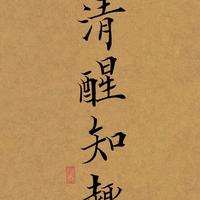 清醒知趣